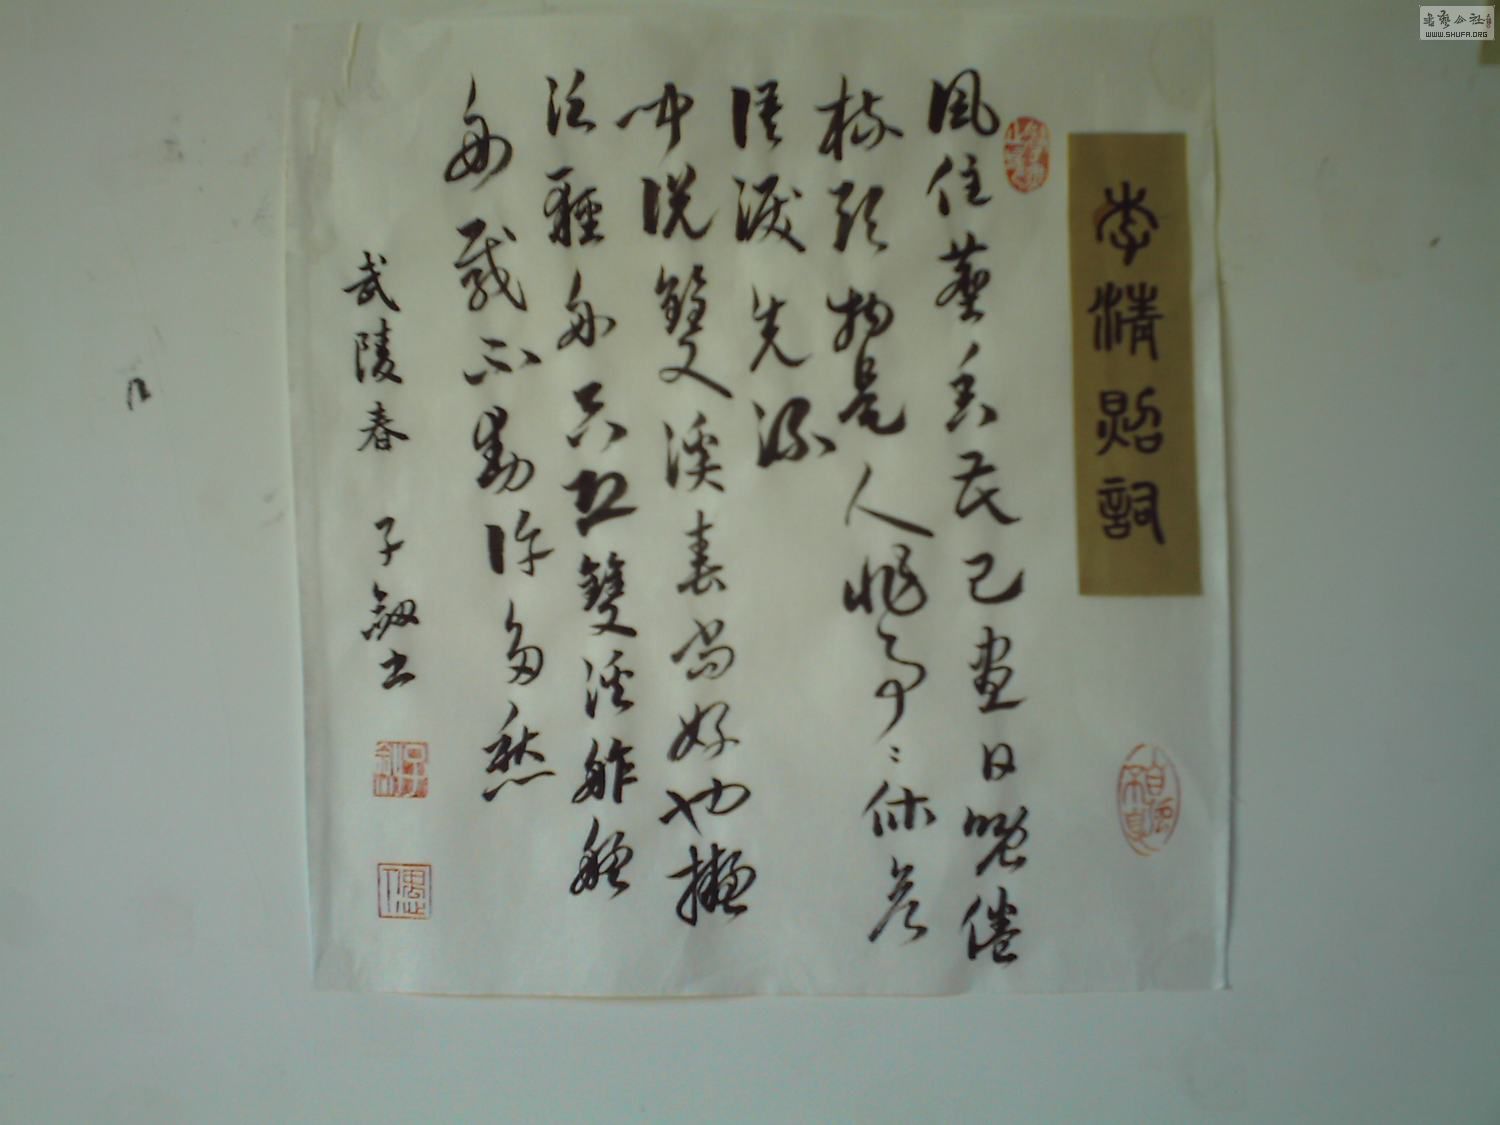 李清照詞
風住塵香花已盡日晚倦
梳頭物是人非事〻休欲
語淚先流
聞説雙溪春尚好也擬
泛輕舟只恐雙溪舴艋
舟載不動許多愁
武陵春 子劍书
書藝公社
WWW.SHUFA.ORG